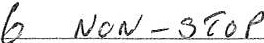 6 NON-STOP